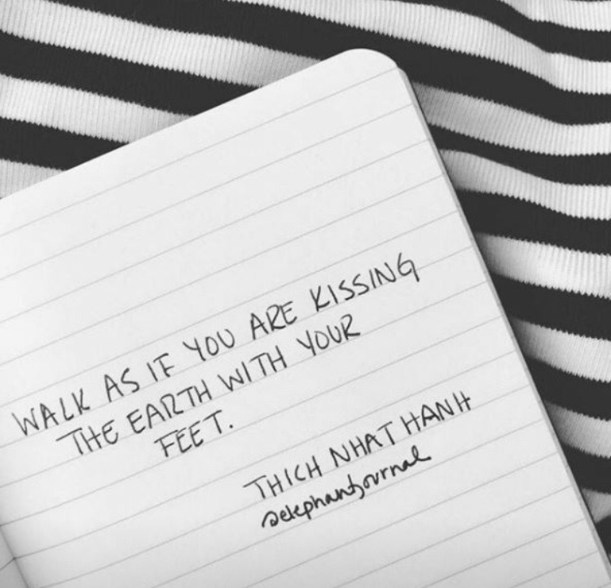 WALK AS IF YOU ARE KISSING
THE EARTH WITH YOUR
FEET.
THICH NHAT HANH
@elephantjournal